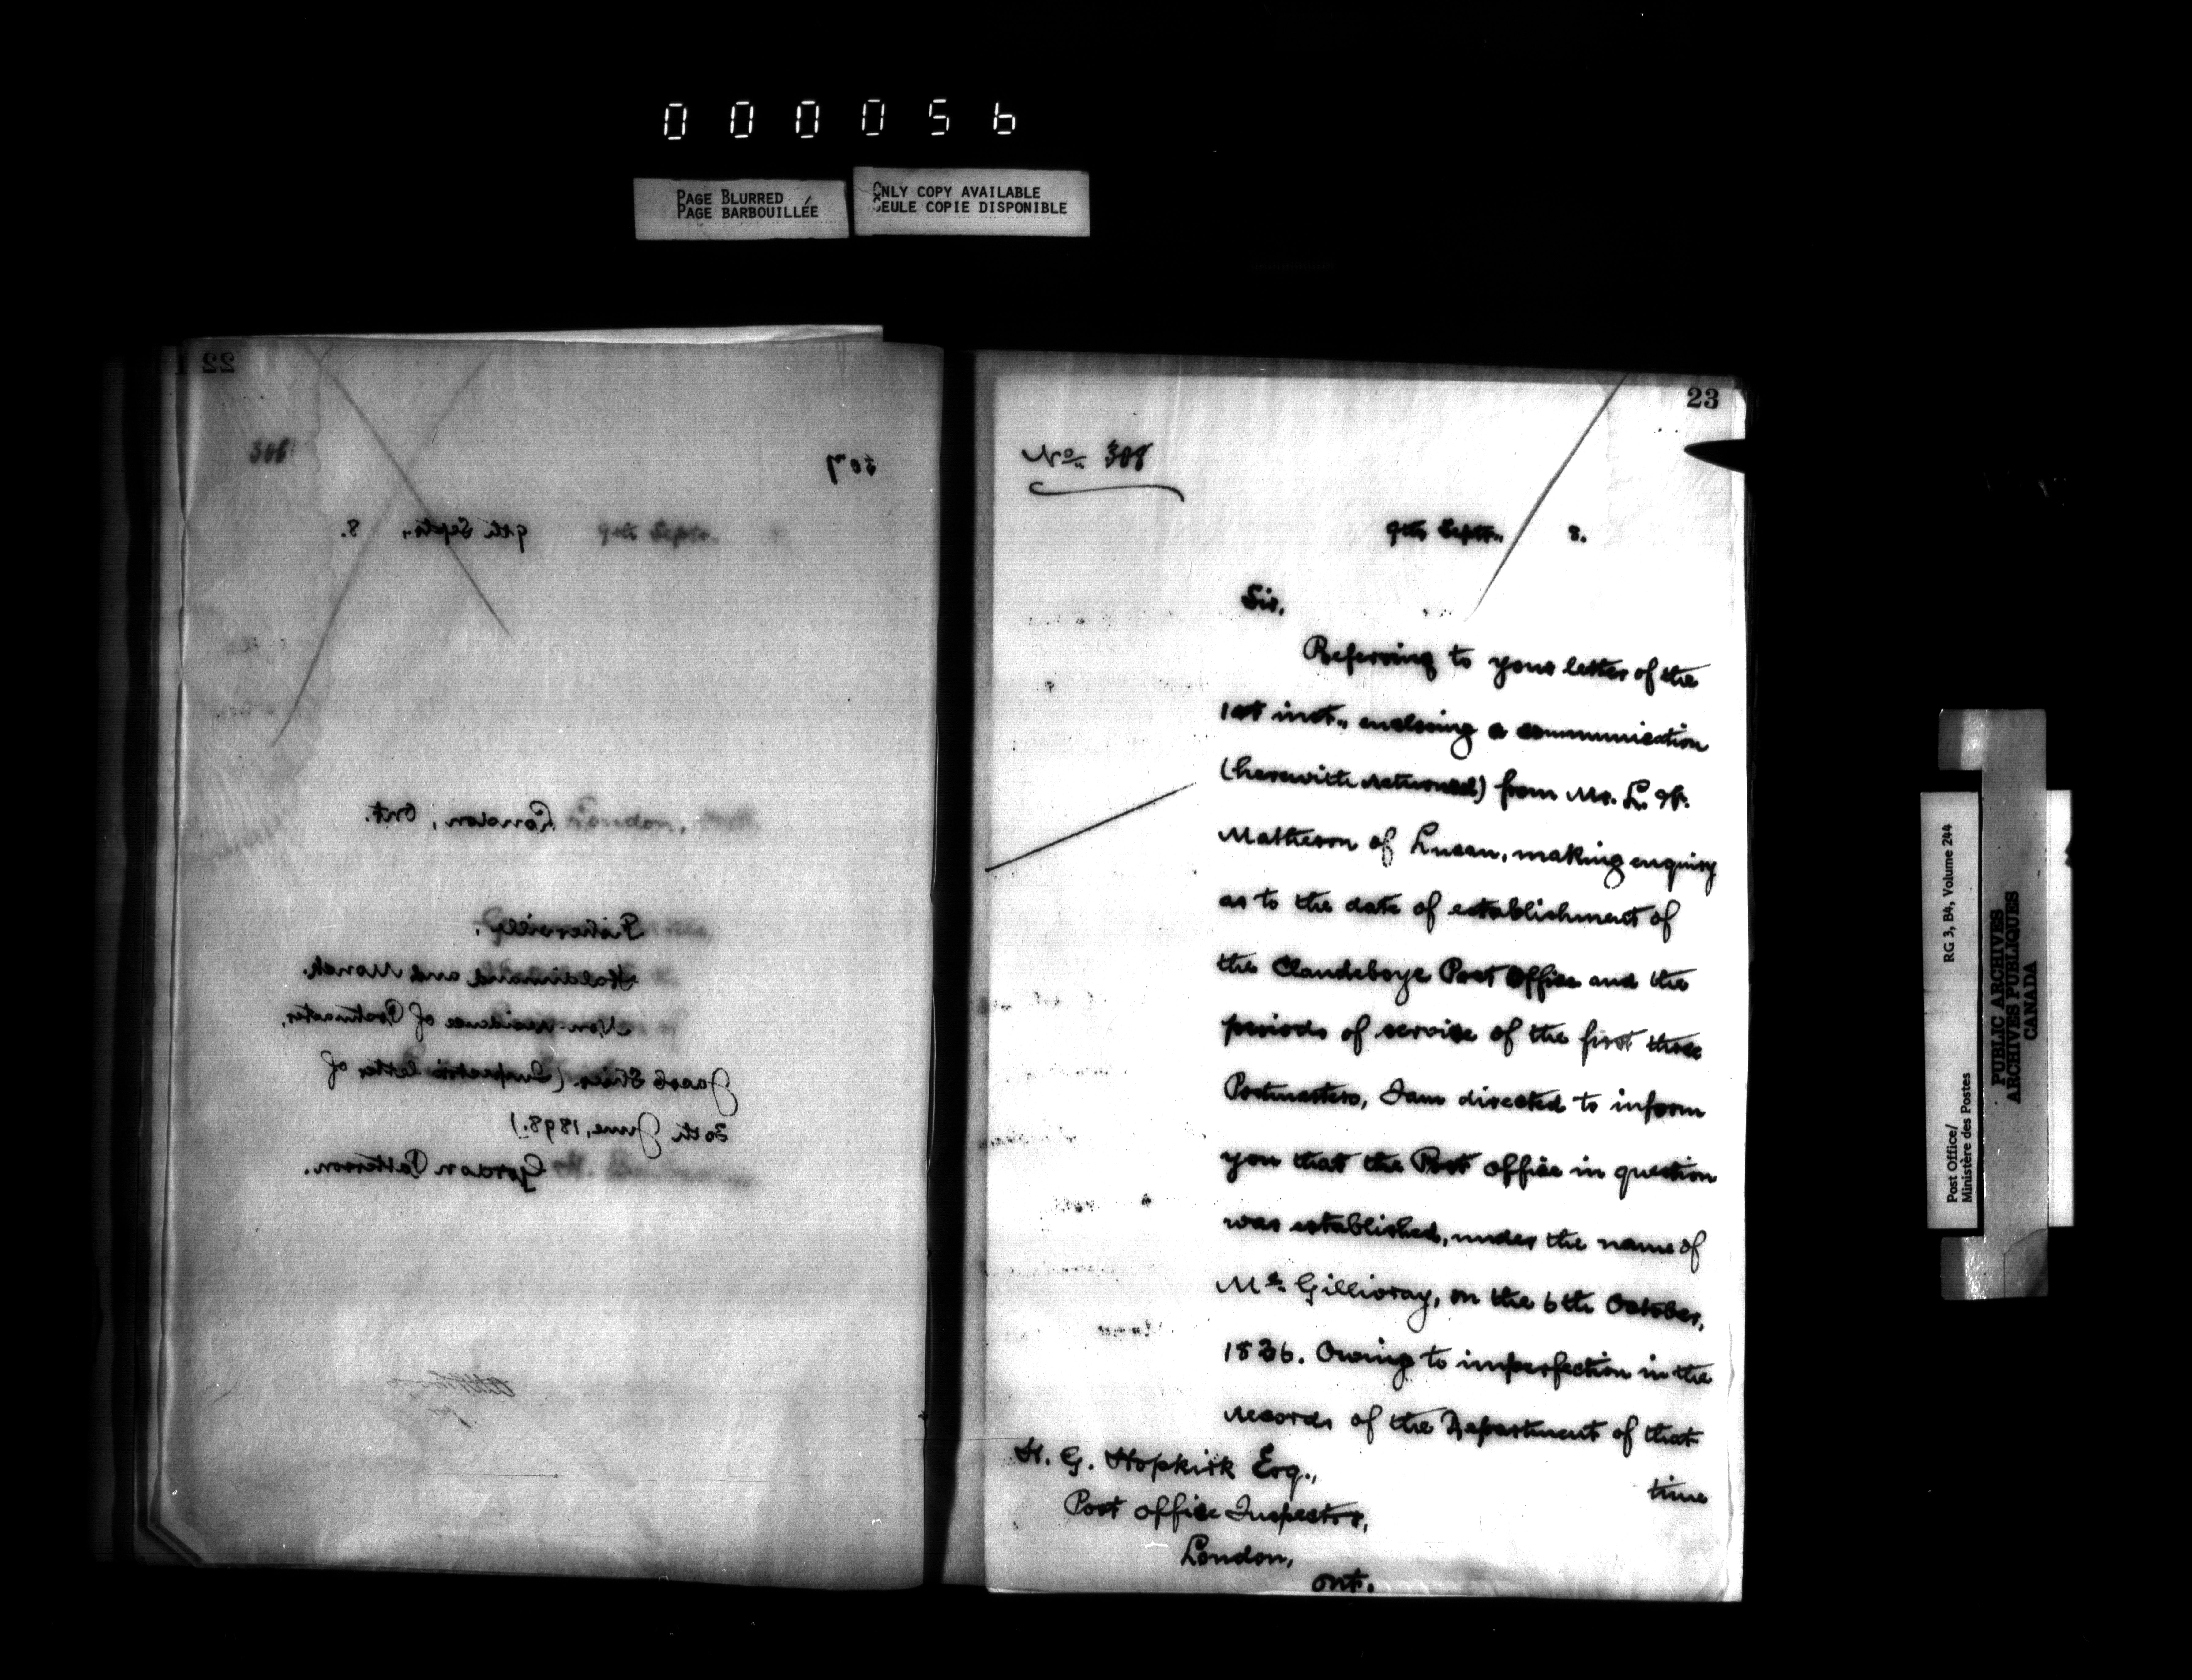 000056
PAGE BLURRED
PAGE BARBOUILLÉE
ONLY COPY AVAILABLE
SEULE COPIE DISPONIBLE
22
308
307
9th Septr., 8.
London, Ont.
Fisherville,
Haldimand and Monck.
Non-residence of Postmaster,
Jacob (Inspector's letter of
30th June, 1898.)
Gordon Patterson.
23
No. 308
9th Septr., 8.
Sir,
Referring to your letter of the
1st inst., enclosing a communication
(herewith returned) from Mr. L. H.
Matheson of Lucan, making enquiry
as to the date of establishment of
the Clandeboye Post Office and the
periods of service of the first three
Postmasters, I am directed to inform
you that the Post Office in question
was established, under the name of
Mc. Gillivray, on the 6th October,
1836. Owing to imperfection in the
records of the Department of that
time
H. G. Hopkirk Esq.,
Post Office Inspector,
London,
Ont.
Post Office/
Ministère des Postes
RG 3, B4, Volume 244
PUBLIC ARCHIVES
ARCHIVES PUBLIQUES
CANADA